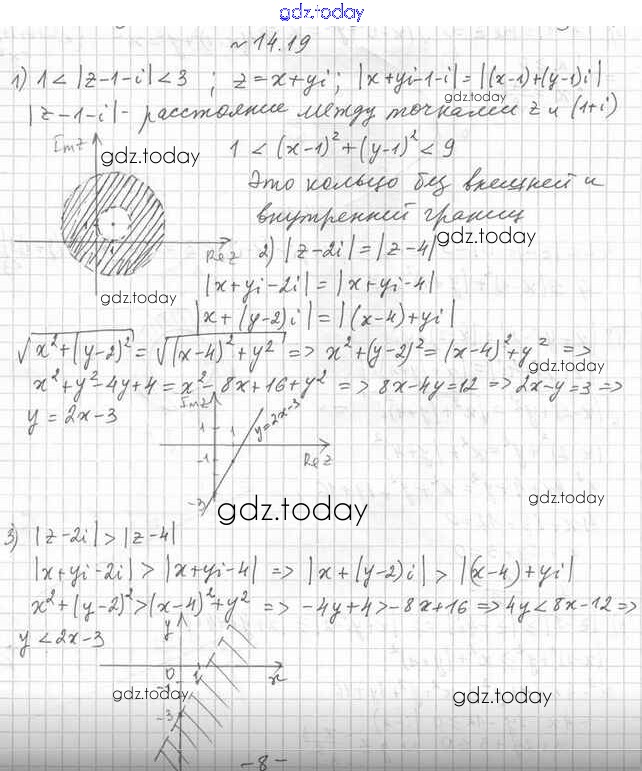 gdz.today
№ 14.19
1) 1 < |z-1-i| < 3 ; z = x+yi ; |x+yi-1-i| = |(x-1)+(y-1)i|
gdz.today
|z-1-i| - расстояние между точками z и (1+i)
Im z
gdz.today
1 < (x-1)² + (y-1)² < 9
Это кольцо без внешней и
внутренней границ
gdz.today
Re z
2) |z-2i| = |z-4|
|x+yi-2i| = |x+yi-4|
gdz.today
|x+(y-2)i| = |(x-4)+yi|
√(x²+(y-2)²) = √((x-4)²+y²) => x²+(y-2)² = (x-4)²+y² =>
gdz.today
x²+y²-4y+4 = x²-8x+16+y² => 8x-4y=12 => 2x-y=3 =>
y = 2x-3
Im z
y=2x-3
1
1
-1
Re z
-3
gdz.today
gdz.today
3) |z-2i| > |z-4|
|x+yi-2i| > |x+yi-4| => |x+(y-2)i| > |(x-4)+yi|
x²+(y-2)² > (x-4)²+y² => -4y+4 > -8x+16 => 4y < 8x-12 =>
y < 2x-3
y
0
1
x
-1
gdz.today
gdz.today
-3
-8-